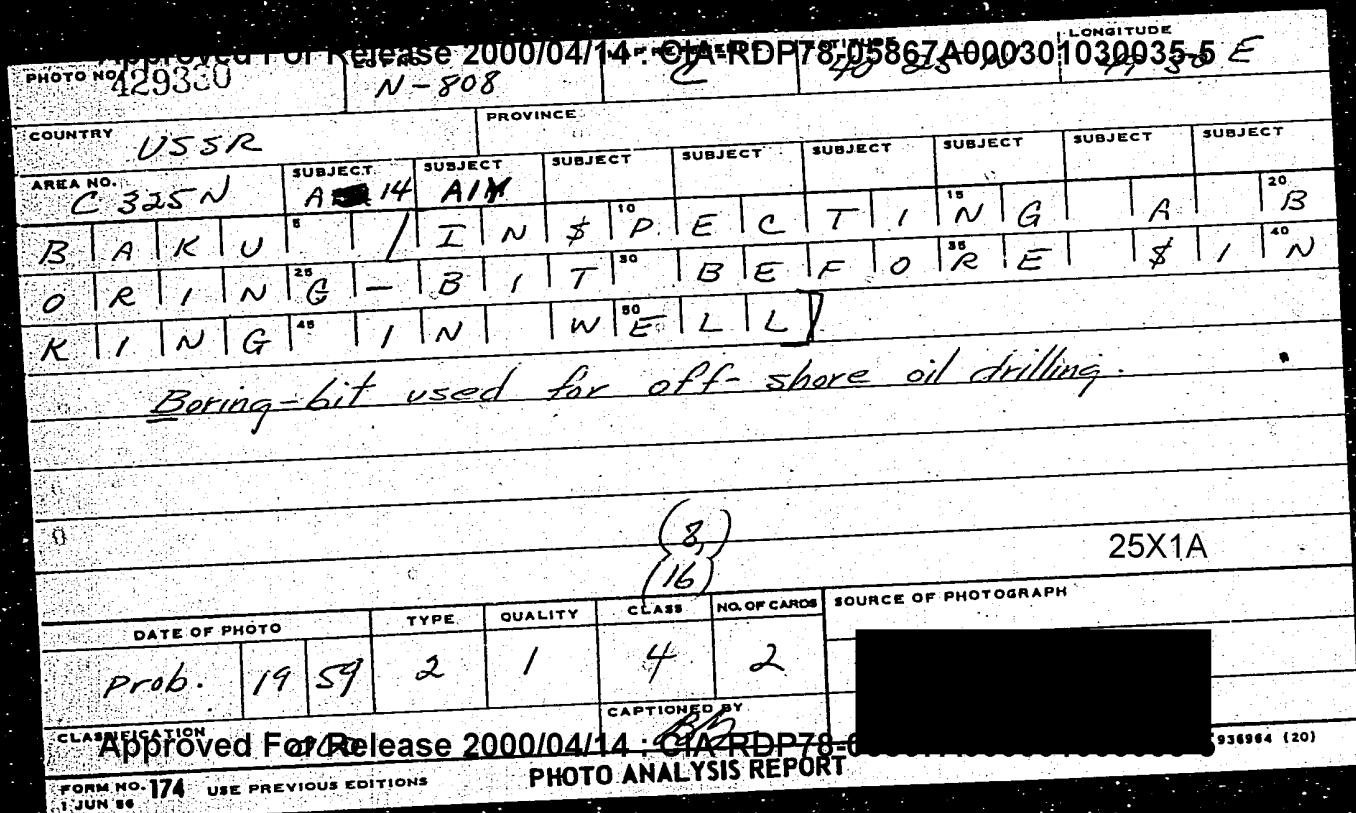 Approved For Release 2000/04/14 : CIA-RDP78-05867A000301030035-5
PHOTO NO. LONGITUDE
N-808 C E
COUNTRY USSR PROVINCE
AREA NO. C 325N SUBJECT A 14 SUBJECT AIM SUBJECT SUBJECT SUBJECT SUBJECT SUBJECT SUBJECT
BAKU /IN$PECTING A B
ORING-BIT BEFORE $IN
KING IN WELL]
Boring-bit used for off-shore oil drilling.
(8,)
(16)
25X1A
DATE OF PHOTO TYPE QUALITY CLASS NO. OF CARDS SOURCE OF PHOTOGRAPH
Prob. 19 59 2 1 4 2
CAPTIONED BY
CLASSIFICATION
Approved For Release 2000/04/14 : CIA-RDP78-0
936964 (20)
FORM NO. 174 USE PREVIOUS EDITIONS PHOTO ANALYSIS REPORT
1 JUN 56